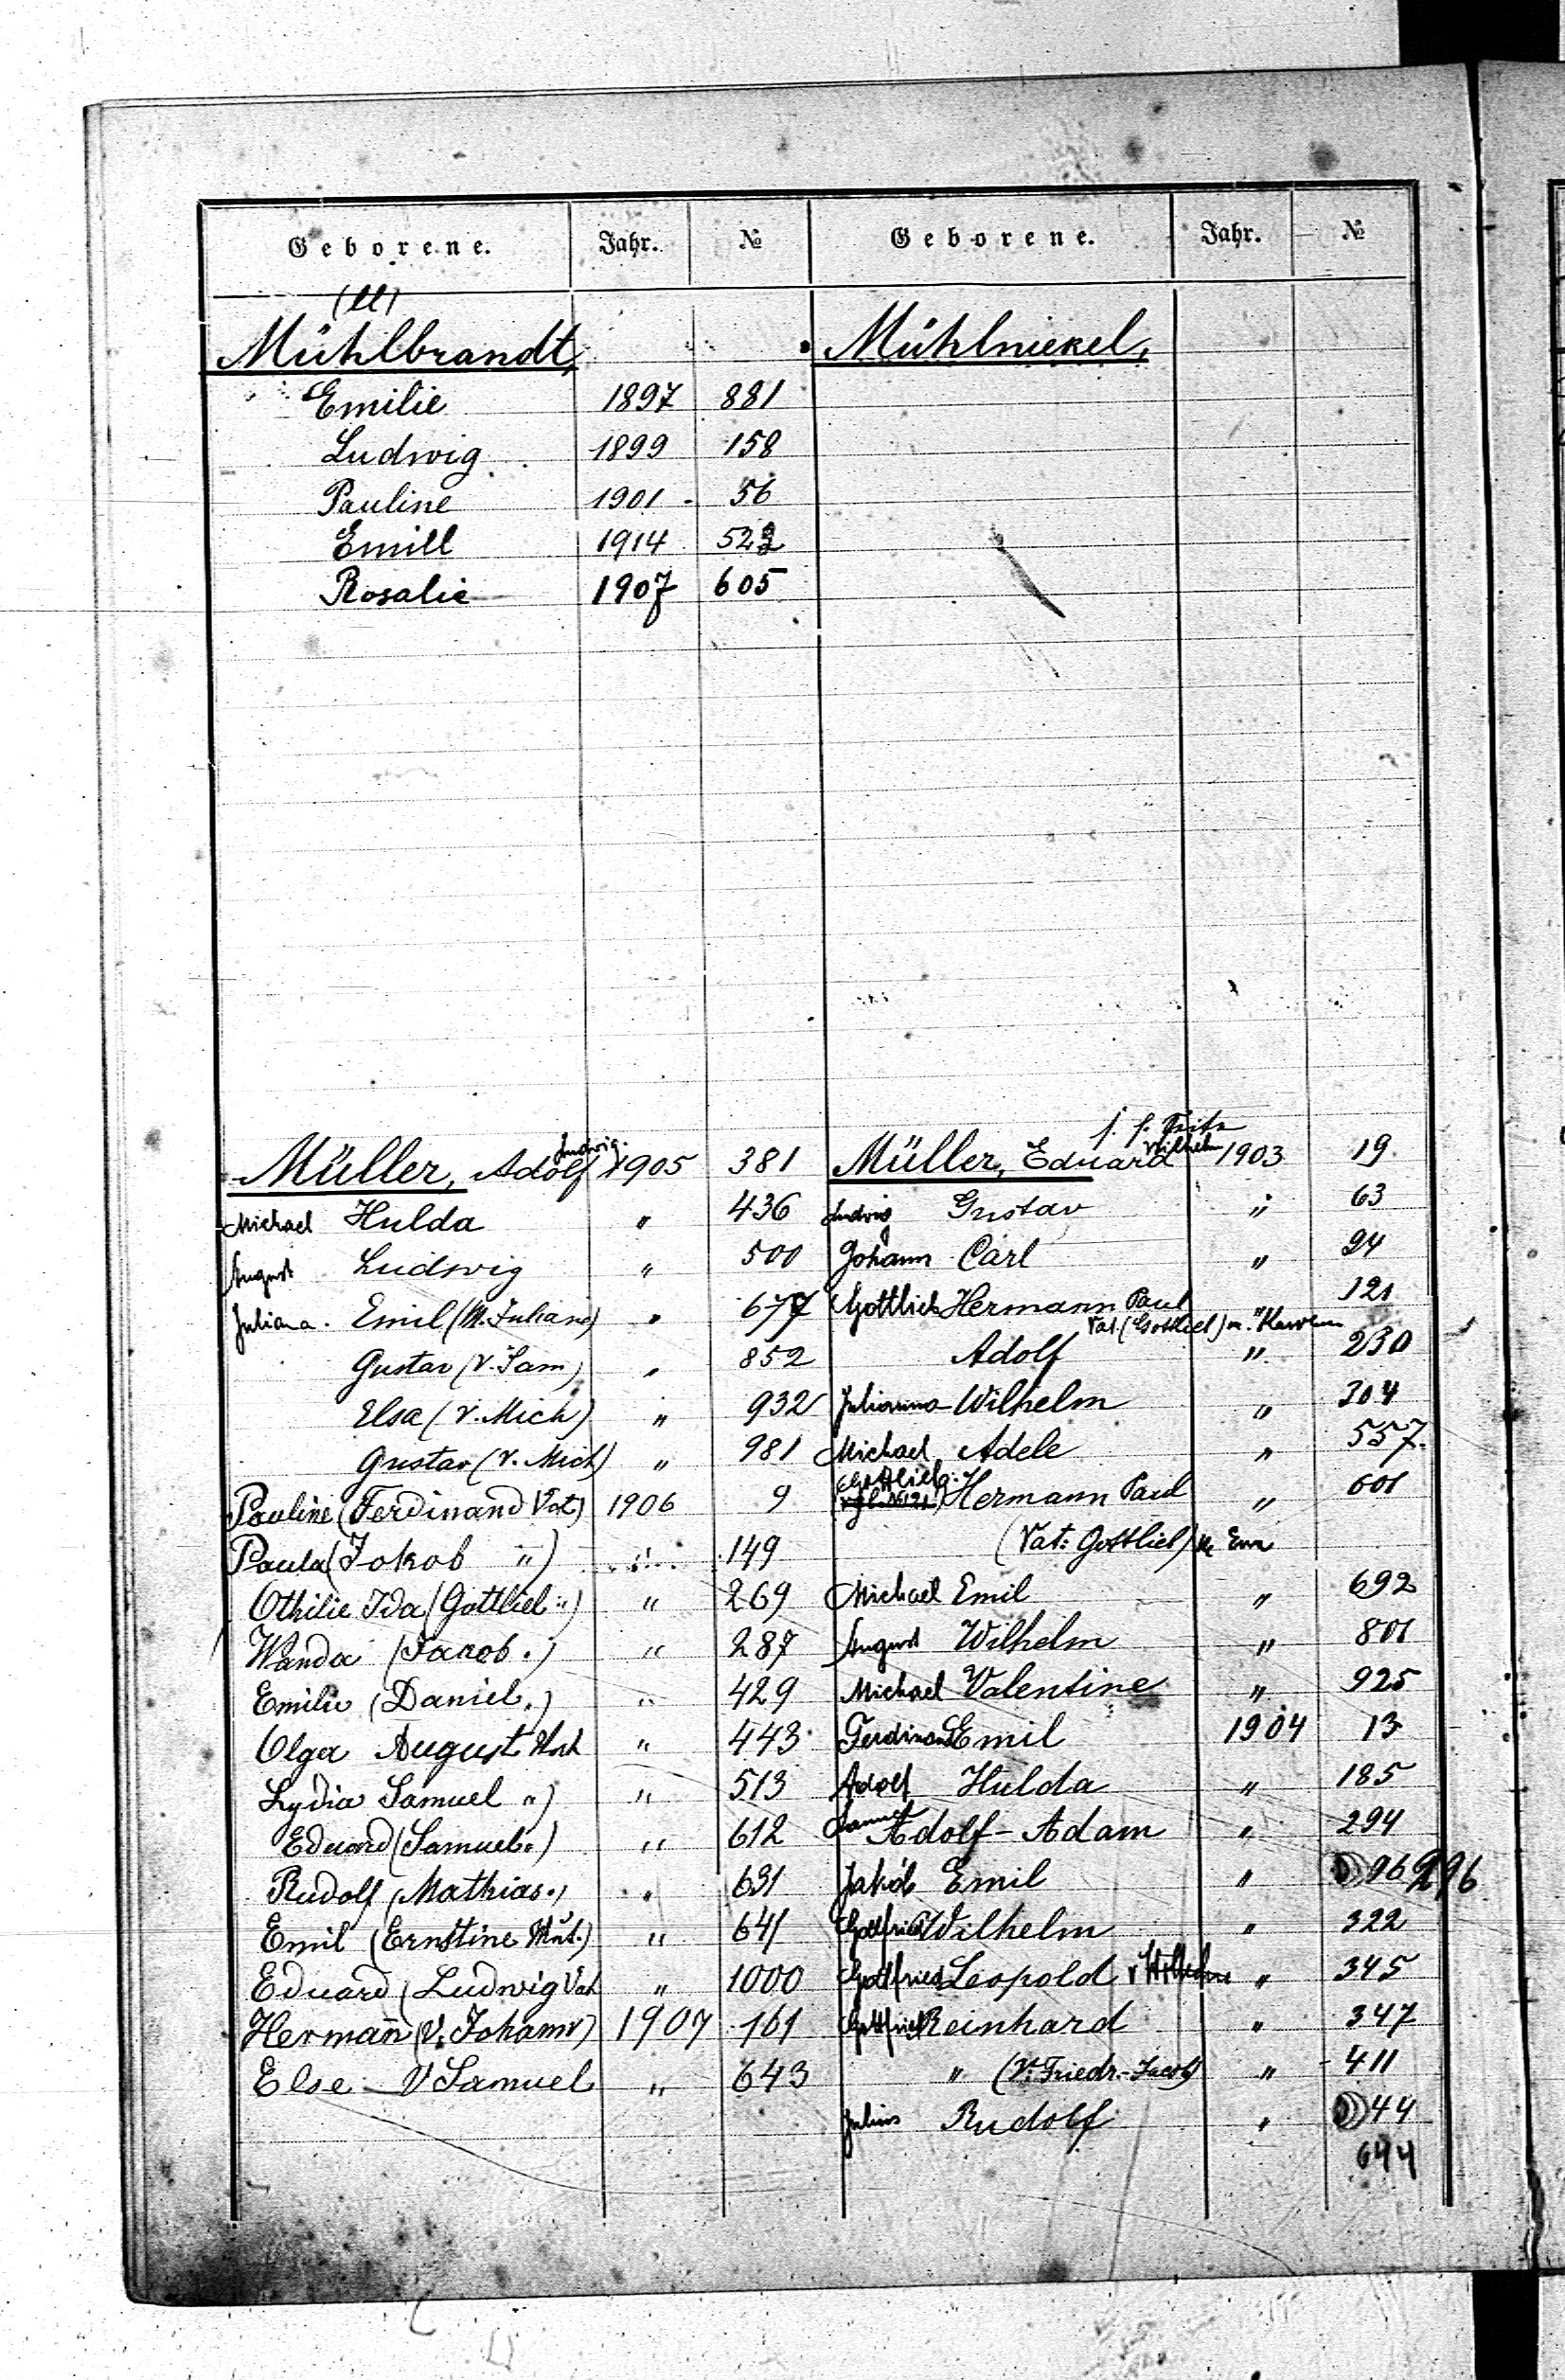 Geborene. Jahr. № Geborene. Jahr. №
(ll)
Mühlbrandt, Mühlnickel,
Emilie 1897 881
Ludwig 1899 158
Pauline 1901 - 56
Emill 1914 523
Rosalie 1907 605
Müller, Adolf Ludwig. 1905 381
Michael Hulda " 436
August Ludwig " 500
Juliana. Emil (M. Juliane) " 677
Gustav (V. Sam) " 852
Elsa (V. Mich) " 932
Gustav (V. Mich) " 981
Pauline (Ferdinand Vat) 1906 9
Paula (Jokob ") " 149
Othilie Ida (Gottlieb ") " 269
Wanda (Jakob ") " 287
Emilie (Daniel ") " 429
Olga August " 443
Lydia Samuel ") " 513
Eduard (Samuel ") " 612
Rudolf (Mathias ") " 631
Emil (Ernstine Mut.) " 641
Eduard (Ludwig Vat " 1000
Hermann (V. Johann) 1907 161
Else V Samuel " 643
Müller, Eduard Wilhelm 1903 19
Ludwig Gustav " 63
Johann Carl " 94
Gottlieb Hermann Paul " 121
Vat. (Gottlieb)
Adolf " 230
Julianna Wilhelm " 304
Michael Adele " 557.
Gottlieb. Hermann Paul " 601
(Vat: Gottlieb)
Michael Emil " 692
August Wilhelm " 801
Michael Valentine " 925
Ferdinand Emil 1904 13
Adolf Hulda " 185
Samuel Adolf-Adam " 294
Jakób Emil " 96 296
Gottfried Wilhelm " 322
Gottfried Leopold " 345
Gottfried Reinhard " 347
" (V. Friedr.-Jacob) " 411
Julius Rudolf " 44
644